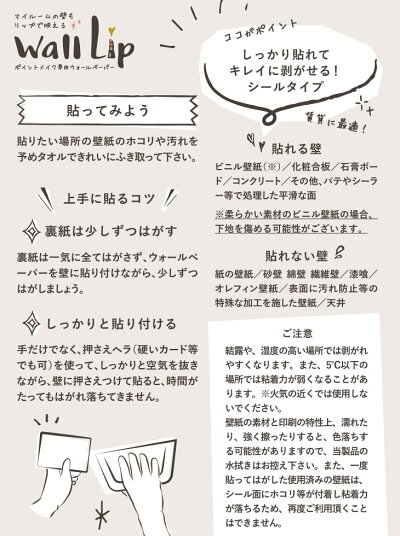 マイルームの壁も
リップで映える
Wall Lip
ポイントメイク専用ウォールペーパー
貼ってみよう
貼りたい場所の壁紙のホコリや汚れを
予めタオルできれいにふき取って下さい。
上手に貼るコツ
裏紙は少しずつはがす
裏紙は一気に全てはがさず、ウォールペ
ーパーを壁に貼り付けながら、少しずつ
はがしましょう。
しっかりと貼り付ける
手だけでなく、押さえヘラ（硬いカード等
でも可）を使って、しっかりと空気を抜き
ながら、壁に押さえつけて貼ると、時間が
たってもはがれ落ちてきません。
ココがポイント
しっかり貼れて
キレイに剥がせる！
シールタイプ
賃貸に最適！
貼れる壁
ビニル壁紙（※）／化粧合板／石膏ボー
ド／コンクリート／その他、パテやシーラ
ー等で処理した平滑な面
※柔らかい素材のビニル壁紙の場合、
下地を傷める可能性がございます。
貼れない壁
紙の壁紙／砂壁 綿壁 繊維壁／漆喰／
オレフィン壁紙／表面に汚れ防止等の
特殊な加工を施した壁紙／天井
ご注意
結露や、湿度の高い場所では剥がれ
やすくなります。また、5℃以下の
場所では粘着力が弱くなることがあ
ります。※火気の近くでは使用しな
いでください。
壁紙の素材と印刷の特性上、濡れた
り、強く擦ったりすると、色落ちす
る可能性がありますので、当製品の
水拭きはお控え下さい。また、一度
貼ってはがした使用済みの壁紙は、
シール面にホコリ等が付着し粘着力
が落ちるため、再度ご利用頂くこと
はできません。